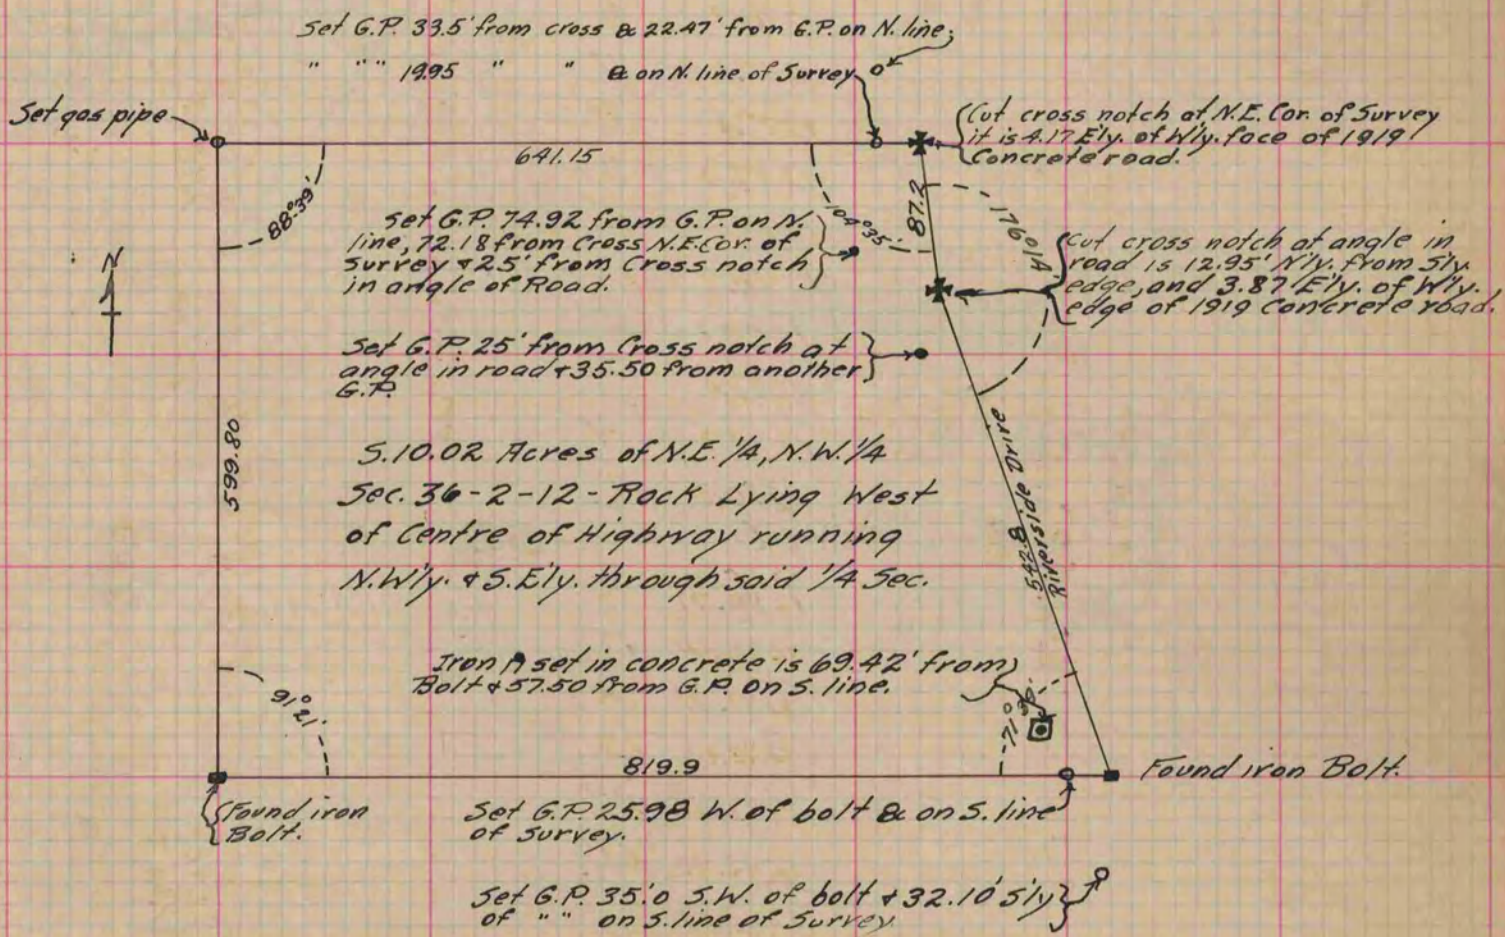 Set G.P. 33.5' from cross & 22.47' from G.P. on N. line.
" " " 19.95 " " & on N. line of Survey
Set gas pipe
Cut cross notch at N.E. Cor. of Survey
it is 4.17 E'ly. of W'ly. face of 1919
Concrete road.
641.15
88°39'
104°35'
87.2
176°01'
Set G.P. 74.92 from G.P. on N.
line, 72.18 from Cross N.E. Cor. of
Survey & 25' from Cross notch
in angle of Road.
Cut cross notch at angle in
road is 12.95' N'ly. from S'ly.
edge, and 3.87 E'ly. of W'ly.
edge of 1919 Concrete road.
N
Set G.P. 25' from Cross notch at
angle in road & 35.50 from another
G.P.
599.80
S. 10.02 Acres of N.E. 1/4, N.W. 1/4
Sec. 36-2-12-Rock Lying West
of Centre of Highway running
N.W'ly. & S.E'ly. through said 1/4 Sec.
542.8
Riverside Drive
Iron set in concrete is 69.42' from
Bolt & 57.50 from G.P. on S. line.
91°21'
71°
819.9
Found iron Bolt.
Found iron
Bolt.
Set G.P. 25.98 W. of bolt & on S. line
of Survey.
Set G.P. 35'.0 S.W. of bolt & 32.10' S'ly
of " " on S. line of Survey